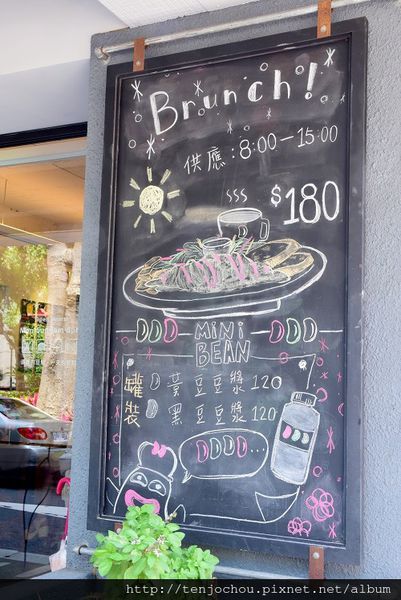 Brunch!
供應：8:00－15:00
$180
MiNi
BEAN
罐裝
黃豆豆漿 120
黑豆豆漿 120
http://tenjochou.pixnet.net/album